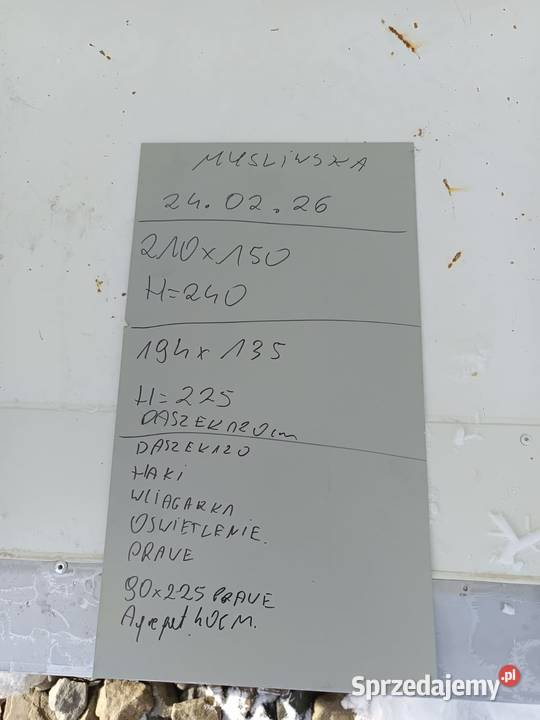 MYSLIWSKA
24.02.26
210x150
H=240
194x135
H=225
DASZEK 120cm
DASZEK 120
HAKI
WCIAGARKA
OSWIETLENIE.
PRAWE
90x225 PRAWE
Agregat 40CM.
Sprzedajemy.pl